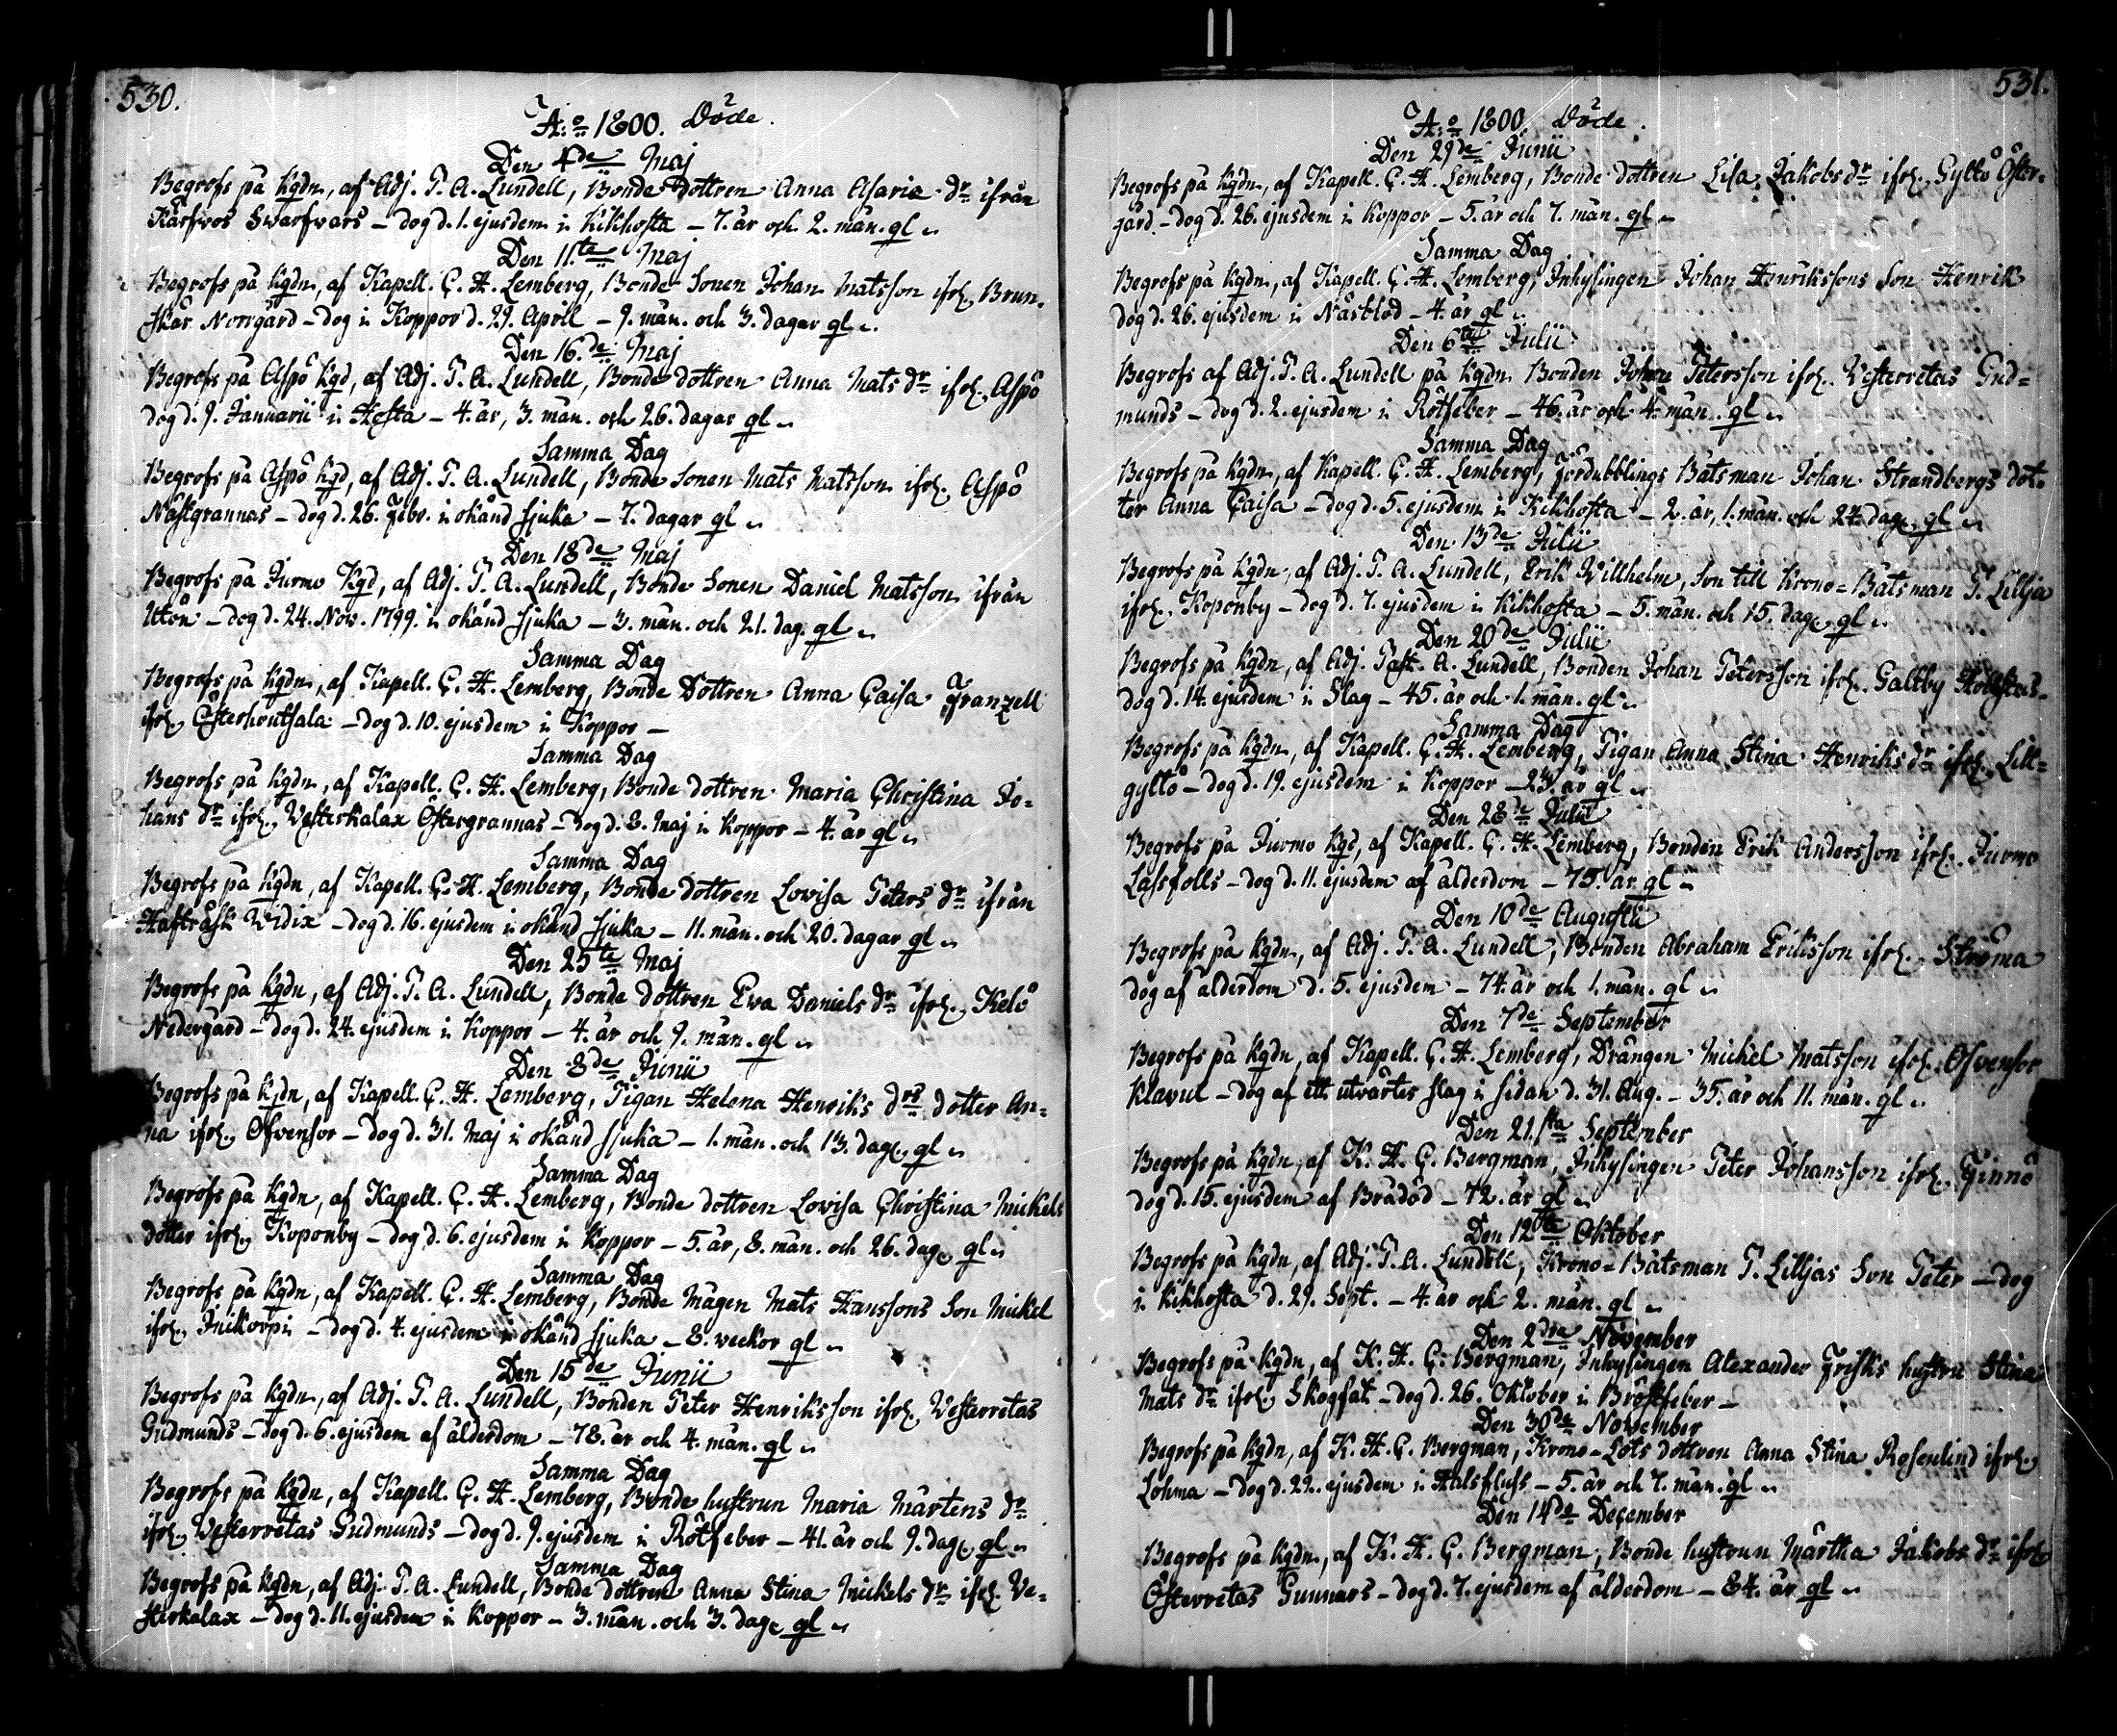 530.
A:o 1800. Döde.
Den 4de Maj
Begrofs på kgdn, af Adj. P. A. Lundell, Bonde Dottren Anna Asaria dr ifrån
Kårfwos Swarfwars – dog d. 1. ejusdem i Kikhosta – 7. år och 2. mån. gl
Den 11.te Maj
Begrofs på kgdn, af Kapell. C. H. Lemberg, Bonde Sonen Johan Matsson ifr. Brun-
skär Norrgård – dog i Koppor d. 29. April – 9. mån. och 3. dagar gl
Den 16.de Maj
Begrofs på Aspö kgd, af Adj. P. A. Lundell, Bonde dottren Anna Mats dr ifr. Aspö
dog d. 9. Januarii i Hosta – 4. år, 3. mån. och 26. dagar gl
Samma Dag
Begrofs på Aspö kgd, af Adj. P. A. Lundell, Bonde Sonen Mats Matsson ifr. Aspö
Nästgrannas – dog d. 26. Febr. i okänd sjuka – 7. dagar gl
Den 18de Maj
Begrofs på Jurmo Kgd, af Adj. P. A. Lundell, Bonde Sonen Daniel Matsson ifrån
Utön – dog d. 24. Nov. 1799. i okänd sjuka – 3. mån. och 21. dag. gl
Samma Dag
Begrofs på kgdn, af Kapell. C. H. Lemberg, Bonde Dottren Anna Caisa Franzell
ifr. Österhoutsala – dog d. 10. ejusdem i Koppor –
Samma Dag
Begrofs på kgdn, af Kapell. C. H. Lemberg, Bonde dottren Maria Christina Jo-
hans dr ifr. Westerkalax Östergrannas – dog d. 8. Maj i koppor – 4. år gl
Samma Dag
Begrofs på kgdn, af Kapell. C. H. Lemberg, Bonde dottren Lovisa Peters dr ifrån
Hafträsk Widix – dog d. 16. ejusdem i okänd sjuka – 11. mån. och 20. dagar gl
Den 25te Maj
Begrofs på kgdn, af Adj. P. A. Lundell, Bonde dottren Ewa Daniels dr ifr. Kelö
Nedergård – dog d. 24. ejusdem i Koppor – 4. år och 9. mån. gl
Den 8de Junii
Begrofs på kgdn, af Kapell. C. H. Lemberg, Pigan Helena Henriks drs dotter An-
na ifr. Ofvensor – dog d. 31. Maj i okänd sjuka – 1. mån. och 13. dag. gl
Samma Dag
Begrofs på kgdn, af Kapell. C. H. Lemberg, Bonde dottren Lovisa Christina Mickels
dotter ifr. Koponby – dog d. 6. ejusdem i Koppor – 5. år, 8. mån. och 26. dag. gl
Samma Dag
Begrofs på kgdn, af Kapell. C. H. Lemberg, Bonde Mågen Mats Hanssons Son Mickel
ifr. Jnikorpi – dog d. 4. ejusdem i okänd sjuka – 8. weckor gl
Den 15de Junii
Begrofs på kgdn, af Adj. P. A. Lundell, Bonden Peter Henriksson ifr. Westerretas
Gudmunds – dog d. 6. ejusdem af ålderdom – 78. år och 4. mån. gl
Samma Dag
Begrofs på kgdn, af Kapell. C. H. Lemberg, Bonde hustrun Maria Mårtens dr
ifr. Westerretas Gudmunds – dog d. 9. ejusdem i Rötfeber – 41. år och 9. dag. gl
Samma Dag
Begrofs på kgdn, af Adj. P. A. Lundell, Bonde dottren Anna Stina Mickels dr ifr. We-
sterkalax – dog d. 11. ejusdem i Koppor – 3. mån. och 3. dag. gl
531.
A:o 1800. Döde.
Den 29de Junii
Begrofs på kgdn, af Kapell. C. H. Lemberg, Bonde dottren Lisa Jakobs dr ifr. Gyltö Öster-
gård – dog d. 26. ejusdem i koppor – 5. år och 7. mån. gl
Samma Dag
Begrofs på kgdn, af Kapell. C. H. Lemberg, Inhysingen Johan Henrikssons Son Henrik
dog d. 26. ejusdem i Näsblod – 4. år gl
Den 6te Julii
Begrofs af Adj. P. A. Lundell på kgdn Bonden Johan Petersson ifr. Westerretas Gud-
munds – dog d. 2. ejusdem i Rötfeber – 46. år och 4. mån. gl
Samma Dag
Begrofs på kgdn, af Kapell. C. H. Lemberg, Fördubblings Båtsman Johan Strandbergs dot-
ter Anna Caisa – dog d. 5. ejusdem i Kikhosta – 2. år, 1. mån. och 24. dag. gl
Den 13de Julii
Begrofs på kgdn, af Adj. P. A. Lundell, Erik Willhelm, Son till Krono-Båtsman P. Lillja
ifr. Koponby – dog d. 7. ejusdem i Kikhosta – 5. mån. och 15. dag. gl
Den 20de Julii
Begrofs på kgdn, af Adj. Past. A. Lundell, Bonden Johan Petersson ifr. Galtby
dog d. 14. ejusdem i Slag – 45. år och 1. mån. gl
Samma Dag
Begrofs på kgdn, af Kapell. C. H. Lemberg, Pigan Anna Stina Henriks dr ifr. Lill-
gyltö – dog d. 19. ejusdem i koppor – 23. år gl
Den 28de Julii
Begrofs på Jurmo kgd, af Kapell. C. H. Lemberg, Bonden Erik Andersson ifr. Jurmo
Lassfolls – dog d. 11. ejusdem af ålderdom – 75. år gl
Den 10de Augustii
Begrofs på kgdn, af Adj. P. A. Lundell, Bonden Abraham Eriksson ifr. Ströma
dog af ålderdom d. 5. ejusdem – 74. år och 1. mån. gl
Den 7de September
Begrofs på kgdn, af Kapell. C. H. Lemberg, Drängen Mickel Matsson ifr. Ofvensor
Klavul – dog af ett utvärtes slag i sidan d. 31. Aug. – 35. år och 11. mån. gl
Den 21.sta September
Begrofs på kgdn, af K. H. C. Bergman, Inhysingen Peter Johansson ifr. Finnö
dog d. 15. ejusdem af Brådöd – 72. år gl
Den 12te Oktober
Begrofs på kgdn, af Adj. P. A. Lundell, Krono-Båtsman P. Lilljas Son Peter – dog
i kikhosta d. 29. Sept. – 4. år och 2. mån. gl
Den 2dra November
Begrofs på kgdn, af K. H. C. Bergman, Inhysingen Alexander Frisks hustru Stina
Mats dr ifr. Skogfat – dog d. 26. Oktober i Bröstfeber –
Den 30de November
Begrofs på kgdn, af K. H. C. Bergman, Krono-Lots dottren Anna Stina Rosenlind ifr.
Lohma – dog d. 22. ejusdem i Halsfluss – 5. år och 7. mån. gl
Den 14de December
Begrofs på kgdn, af K. H. C. Bergman, Bonde hustrun Märtha Jakobs dr ifr.
Österretas Gunnars – dog d. 7. ejusdem af ålderdom – 84. år gl